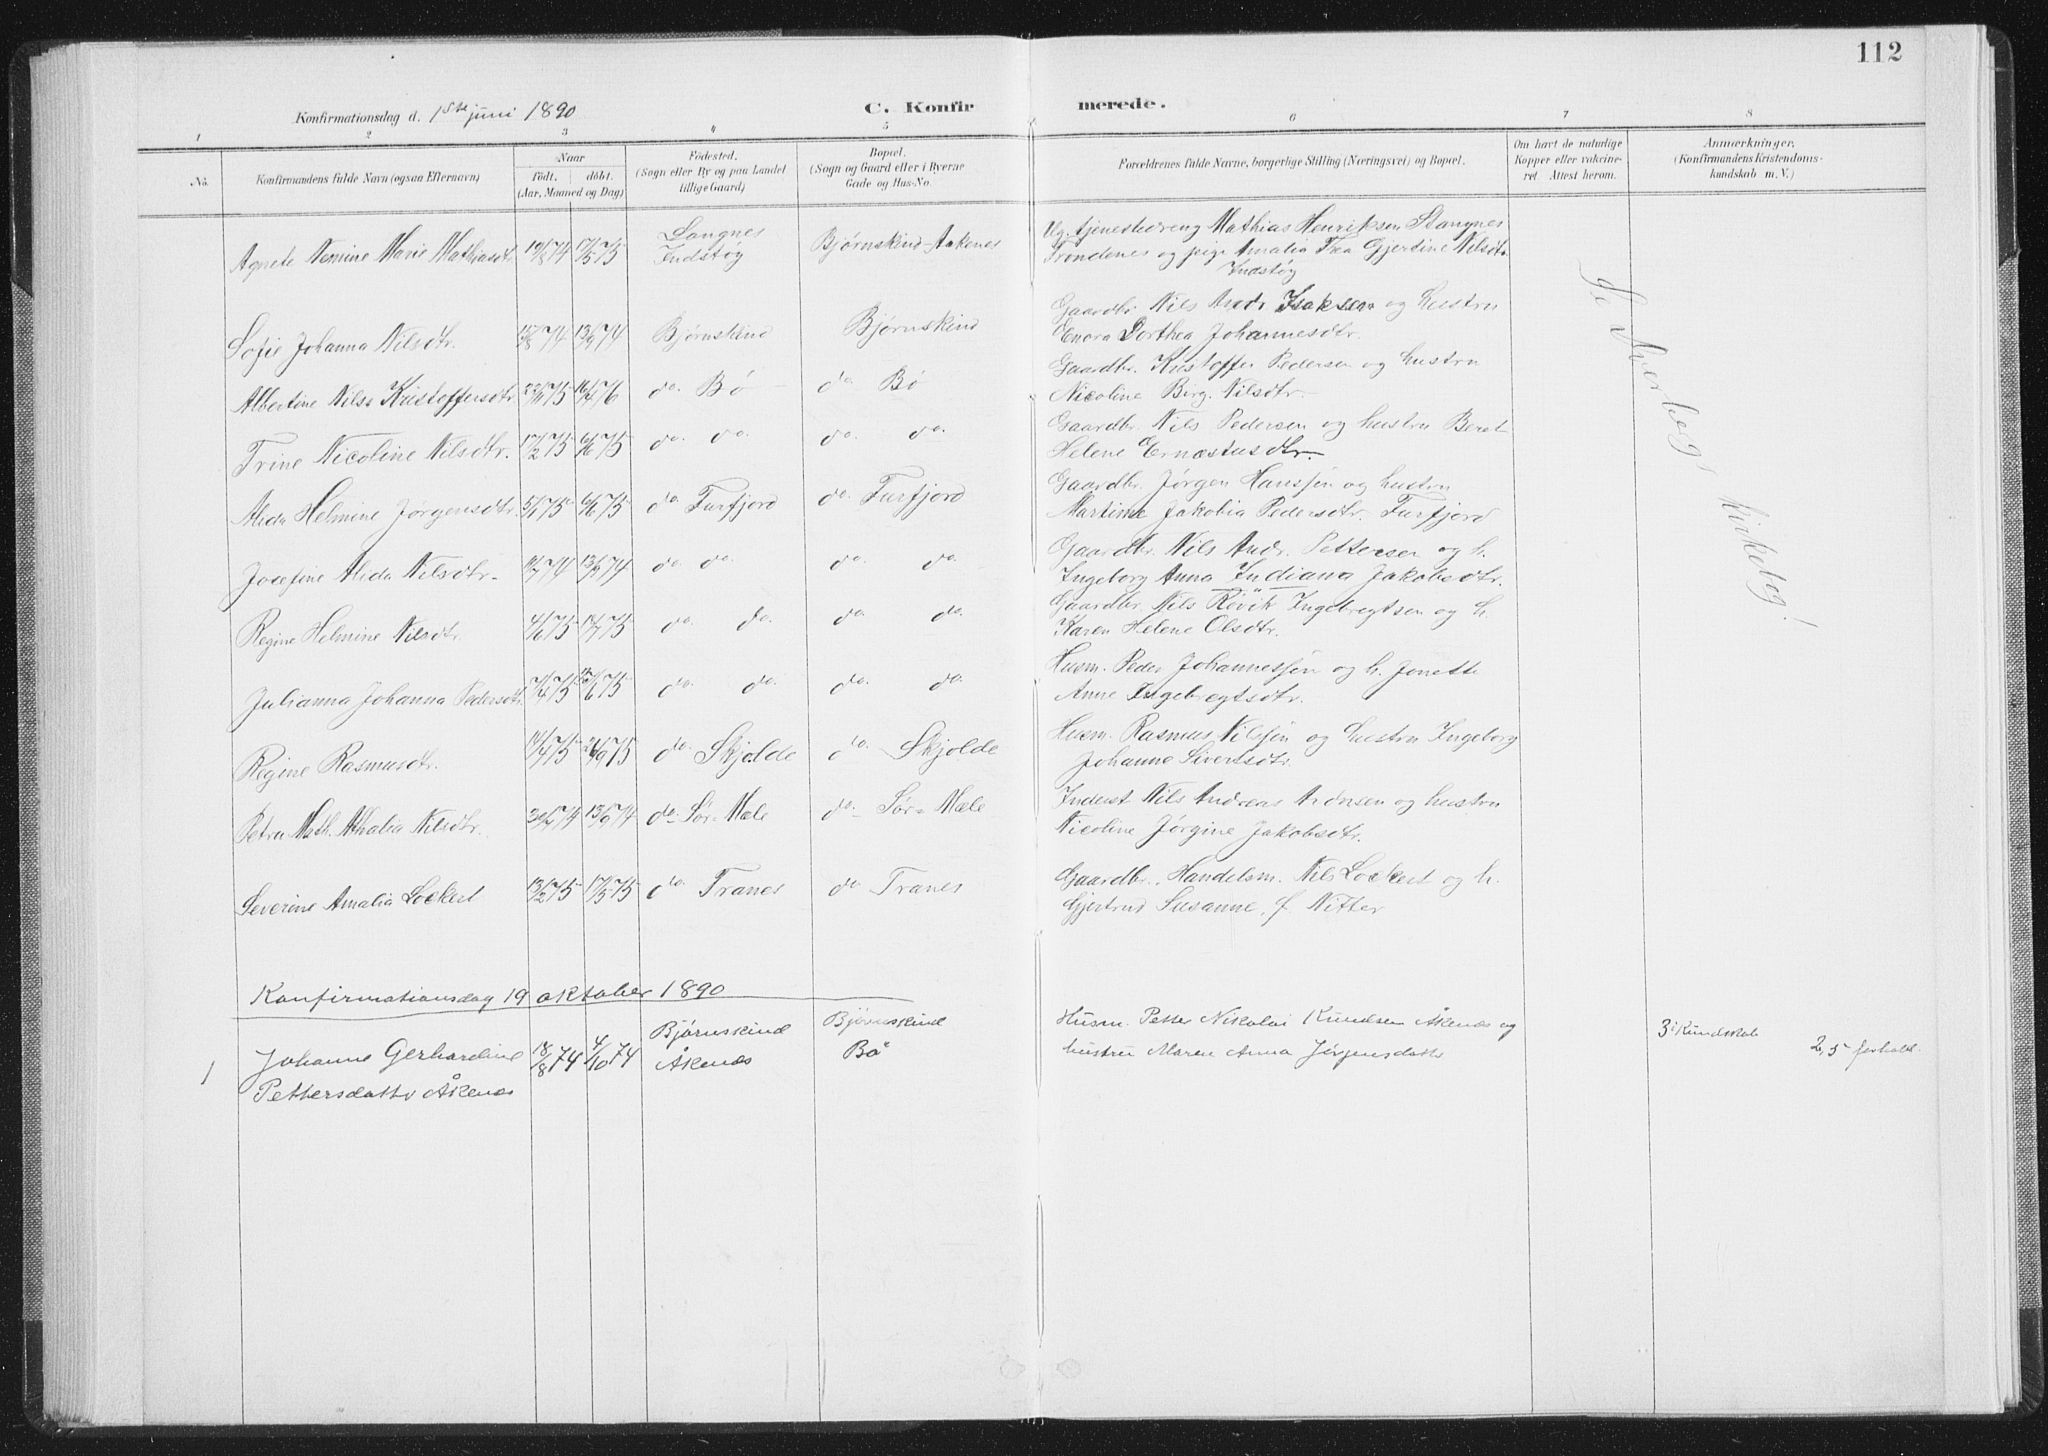 112
Konfirmationsdag d. 1ste juni 1890
C. Konfirmerede.
1 2 3 4 5 6 7 8
No.
Konfirmandens fulde Navn (ogsaa Efternavn)
Naar
født. døbt.
(Aar, Maaned og Dag)
Fødested.
(Sogn eller By og paa Landet
tillige Gaard)
Bopæl.
(Sogn og Gaard eller i Byerne
Gade og Hus-No.
Forældrenes fulde Navne, borgerlige Stilling (Næringsvei) og Bopæl.
Om havt de naturlige
Kopper eller vaccine-
ret. Attest herom.
Anmærkninger,
(Konfirmandens Kristendoms-
kundskab m. V.)
Agnete Nimine Marie Mathiasdtr. 19/8 74 17/5 75 Langnes Indstøy Bjørnskind-Aakenes
Ug. tjenestedreng Mathias Henriksen Stangnes
Trondenes og pige Amalia Fra Gjertine Nilsdtr.
Indstøy
Sofie Johanna Nilsdtr. 15/8 74 13/9 74 Bjørnskind Bjørnskind
Gaardbr. Nils Andr. Isaksen og hustru
Enora Dorthea Johannesdtr.
Albertine Nilss Kristoffersdtr. 23/11 75 16/4 76 do. Bø do. Bø
Gaardbr. Kristoffer Pedersen og hustru
Nicoline Birg. Nilsdtr.
Trine Nicoline Nilsdtr. 17/2 75 6/6 75 do. do. do. do.
Gaardbr. Nils Pedersen og hustru Beret
Helene Ernæstusdtr.
Alida Helmine Jørgensdtr. 5/1 75 6/6 75 do. Furfjord do. Furfjord
Gaardbr. Jørgen Hanssen og hustru
Martine Jakobia Pedersdtr. Furfjord
Josefine Alida Nilsdtr. 11/7 74 13/9 74 do. do. do. do.
Gaardbr. Nils Andr. Pettersen og h.
Ingeborg Anna Indiana Jakobsdtr.
Regine Helmine Nilsdtr. 4/6 75 18/7 75 do. do. do. do.
Gaardbr. Nils Røvik Ingebregtsen og h.
Karen Helene Olsdtr.
Julianna Johanna Pedersdtr. 7/4 75 13/6 75 do. do. do. do.
Husm. Peder Johannessen og h. Jonette
Anne Ingebregtsdtr.
Regine Rasmusdtr. 11/7 75 26/9 75 do. Skjolde do. Skjolde
Husm. Rasmus Nilsen og hustru Ingeborg
Johanne Sivertsdtr.
Petra Math. Athalia Nilsdtr. 30/7 74 13/9 74 do. Sør-Mæle do. Sør-Mæle
Inderst Nils Andreas Andrsen og hustru
Nicoline Jørgine Jakobsdtr.
Severine Amalia Lockert 13/2 75 17/5 75 do. Tranes do. Tranes
Gaardbr. Handelsm. Nils Lockert og h.
Gjertrud Susanne, f. Nitter
kirkebog!
Konfirmationsdag 19 oktober 1890
1 Johanne Gerhardine 18/8 74 4/10 74 Bjørnskind Bjørnskind
Pettersdatter Åkenæs Åkenæs Bø
Husm. Petter Nikolai Knudsen Åkenæs og
hustru Maren Anna Jørgensdatter
3 i Kundskab
2,5 forhold.